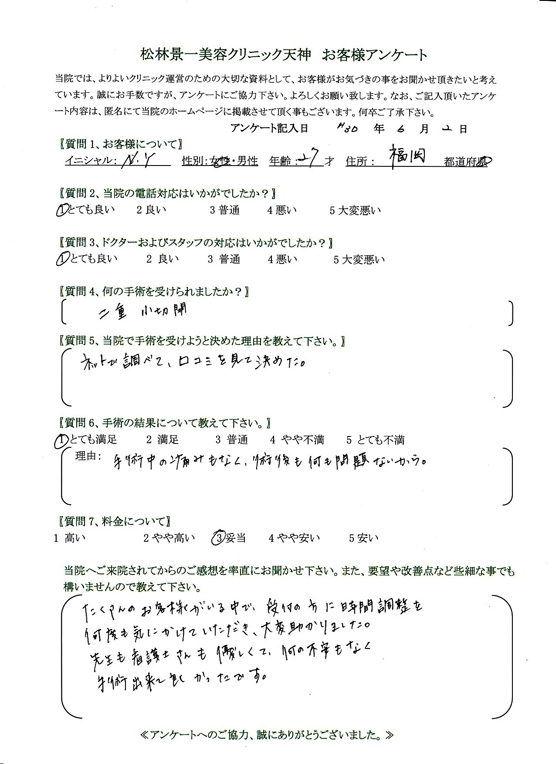 松林景一美容クリニック天神　お客様アンケート
当院では、よりよいクリニック運営のための大切な資料として、お客様がお気づきの事をお聞かせ頂きたいと考え
ています。誠にお手数ですが、アンケートにご協力下さい。よろしくお願い致します。なお、ご記入頂いたアンケ
ート内容は、匿名にて当院のホームページに掲載させて頂く事もございます。何卒ご了承下さい。
アンケート記入日　H30 年 6 月 2 日
〖質問 1、お客様について〗
イニシャル： N.Y 性別：女性・男性 年齢：27 才 住所： 福岡 都道府県
〖質問 2、当院の電話対応はいかがでしたか？〗
1とても良い 2 良い 3 普通 4 悪い 5 大変悪い
〖質問 3、ドクターおよびスタッフの対応はいかがでしたか？〗
1とても良い 2 良い 3 普通 4 悪い 5 大変悪い
〖質問 4、何の手術を受けられましたか？〗
二重 小切開
〖質問 5、当院で手術を受けようと決めた理由を教えて下さい。〗
ネットで調べて、口コミを見て決めた。
〖質問 6、手術の結果について教えて下さい。〗
1とても満足 2 満足 3 普通 4 やや不満 5 とても不満
理由： 手術中の痛みもなく、術後も何も問題ないから。
〖質問 7、料金について〗
1 高い 2 やや高い 3 妥当 4 やや安い 5 安い
当院へご来院されてからのご感想を率直にお聞かせ下さい。また、要望や改善点など些細な事でも
構いませんので教えて下さい。
たくさんのお客様がいる中で、受付の方に時間調整を
何度も気にかけていただき、大変助かりました。
先生も看護士さんも優しくて、何の不安もなく
手術出来て良かったです。
≪アンケートへのご協力、誠にありがとうございました。≫